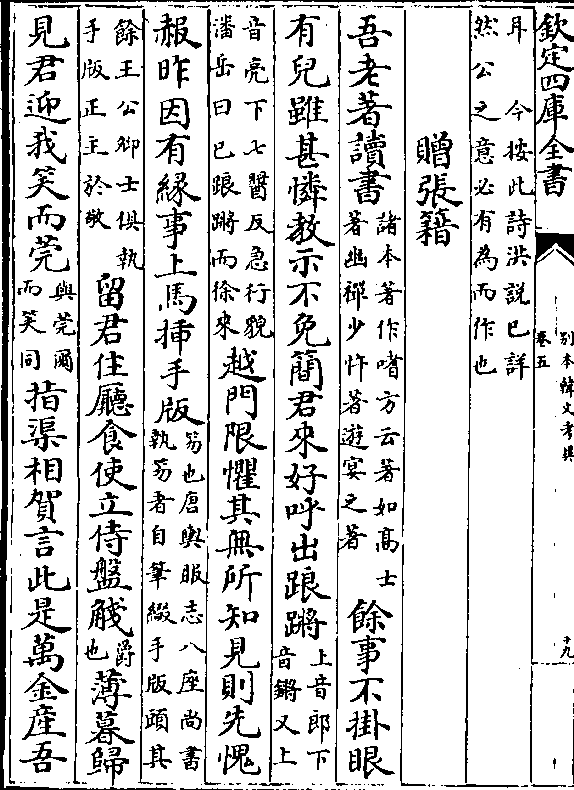 欽定四庫全書
別本韓文考異
卷五
十九
耳　今按此詩洪說已詳
然公之意必有為而作也
贈張籍
吾老著讀書諸本著作嗜方云著如高士
著幽禪少忤著遊宴之著餘事不掛眼
有兒雖甚憐教示不免簡君來好呼出踉蹡上音郎下
音鏘又上
音亮下七醤反急行貌
潘岳曰已踉蹡而徐來越門限懼其無所知見則先愧
赧昨因有緣事上馬揷手版笏也唐輿服志八座尚書
執笏者自筆綴手版頭其
餘王公卿士俱執
手版正主於敬留君住廳食使立侍盤醆爵
也薄暮歸
見君迎我笑而莞與莞爾
而笑同指渠相賀言此是萬金産吾